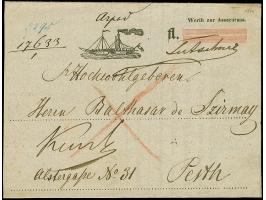 Arpad
17633
fl.
Werth zur Assecuranz.
Sr Hochwohlgeboren
Herrn Balthasar de Szirmay
Alstergasse No 31
Pesth